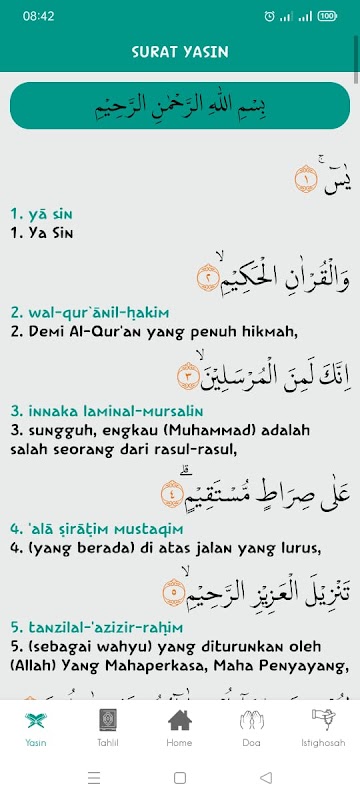 08:42
100
SURAT YASIN
بِسْمِ اللّٰهِ الرَّحْمٰنِ الرَّحِيْمِ
يٰسۤ ۚ ١
1. yā sīn
1. Ya Sin
وَالْقُرْاٰنِ الْحَكِيْمِۙ ٢
2. wal-qur`ānil-ḥakīm
2. Demi Al-Qur'an yang penuh hikmah,
اِنَّكَ لَمِنَ الْمُرْسَلِيْنَۙ ٣
3. innaka laminal-mursalīn
3. sungguh, engkau (Muhammad) adalah
salah seorang dari rasul-rasul,
عَلٰى صِرَاطٍ مُّسْتَقِيْمٍۗ ٤
4. 'alā ṣirāṭim mustaqīm
4. (yang berada) di atas jalan yang lurus,
تَنْزِيْلَ الْعَزِيْزِ الرَّحِيْمِۙ ٥
5. tanzīlal-'azīzir-raḥīm
5. (sebagai wahyu) yang diturunkan oleh
(Allah) Yang Mahaperkasa, Maha Penyayang,
Yasin Tahlil Home Doa Istighosah